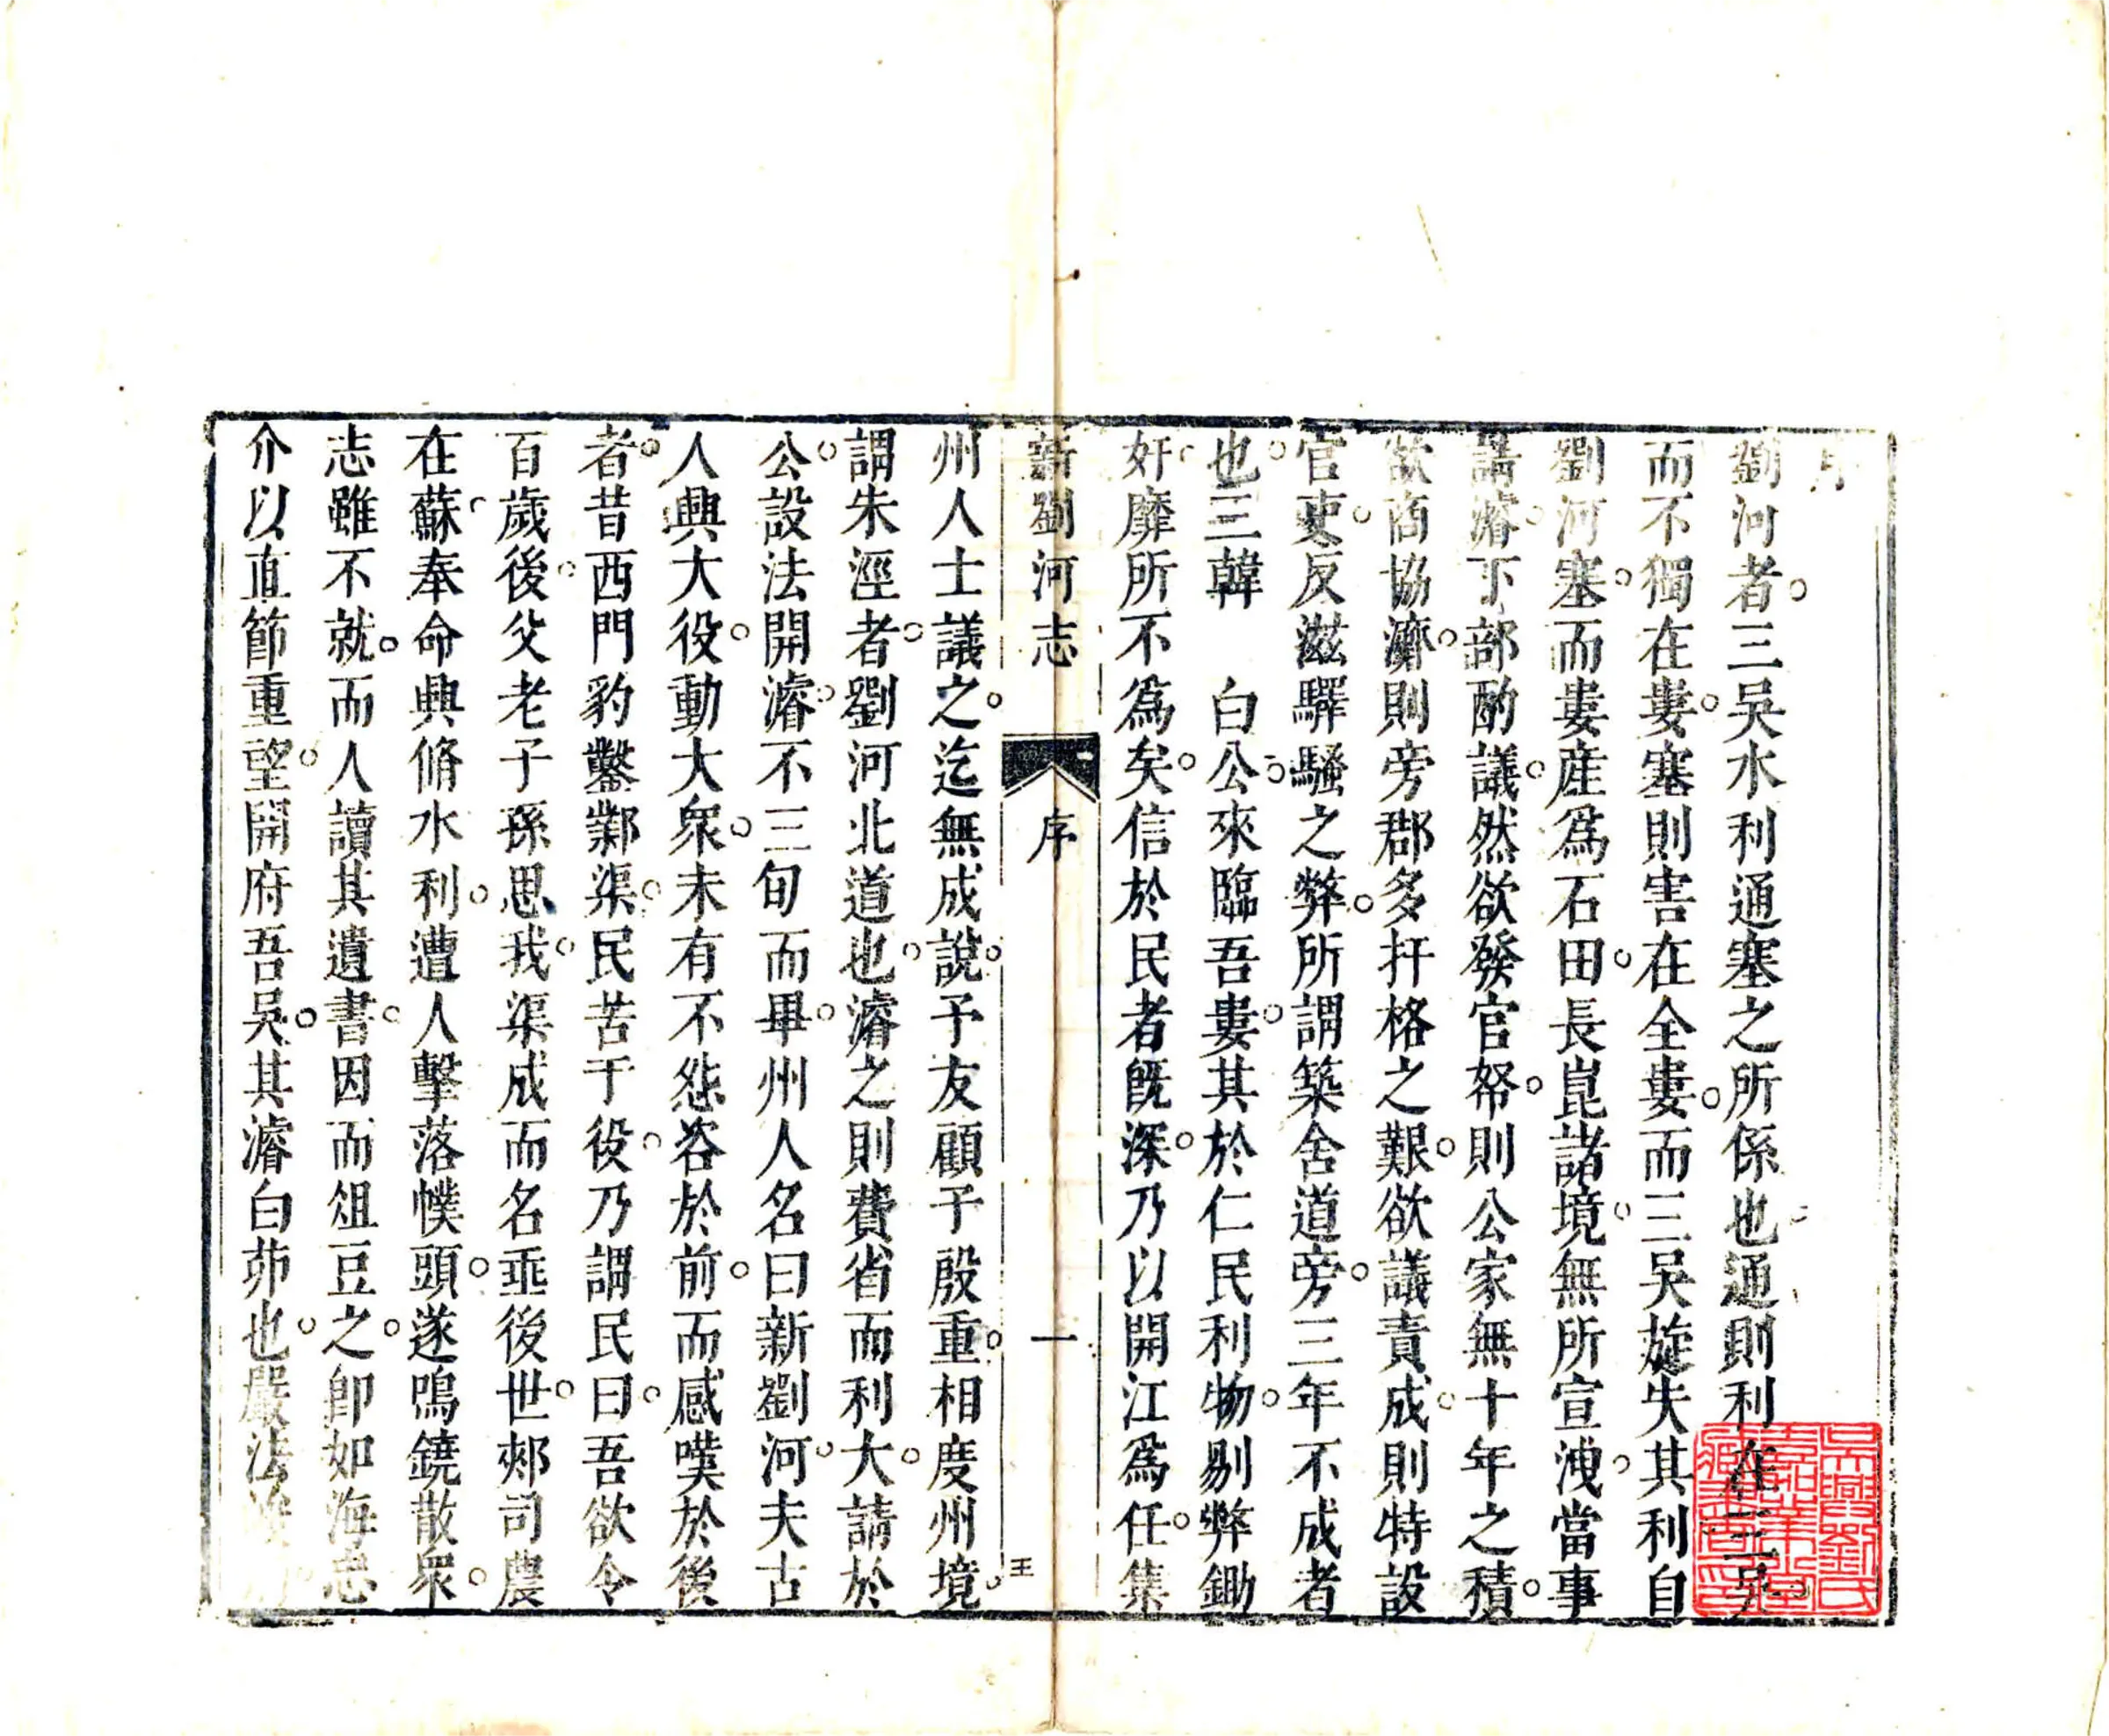 序
劉河者。三吳水利通塞之所係也。通則利在三吳。
而不獨在婁。塞則害在全婁。而三吳旋失其利自
劉河塞。而婁産爲石田。長崑諸境。無所宣洩。當事
請濬。下部酌議。然欲發官帑。則公家無十年之積。
欲商協濟。則旁郡多扞格之艱。欲議責成。則特設
官吏。反滋驛騷之弊。所謂築舍道旁。三年不成者
也。三韓　白公。來臨吾婁。其於仁民利物。剔弊鋤
奸。靡所不爲矣。信於民者旣深。乃以開江爲任。集
新劉河志　序　一　王
州人士議之。迄無成說。予友顧子殷重。相度州境。
謂朱涇者。劉河北道也。濬之則費省而利大。請於
公。設法開濬。不三旬而畢。州人名曰新劉河。夫古
人興大役。動大衆。未有不怨咨於前。而感嘆於後
者。昔西門豹鑿鄴渠。民苦于役。乃謂民曰。吾欲令
百歲後。父老子孫思我。渠成而名垂後世。郟司農
在蘇。奉命興脩水利。遭人擊落幞頭。遂鳴鐃散衆。
志雖不就。而人讀其遺書。因而俎豆之。卽如海忠
介以直節重望。開府吾吳。其濬白茆也。嚴法
吳興劉氏
嘉業堂
藏書印